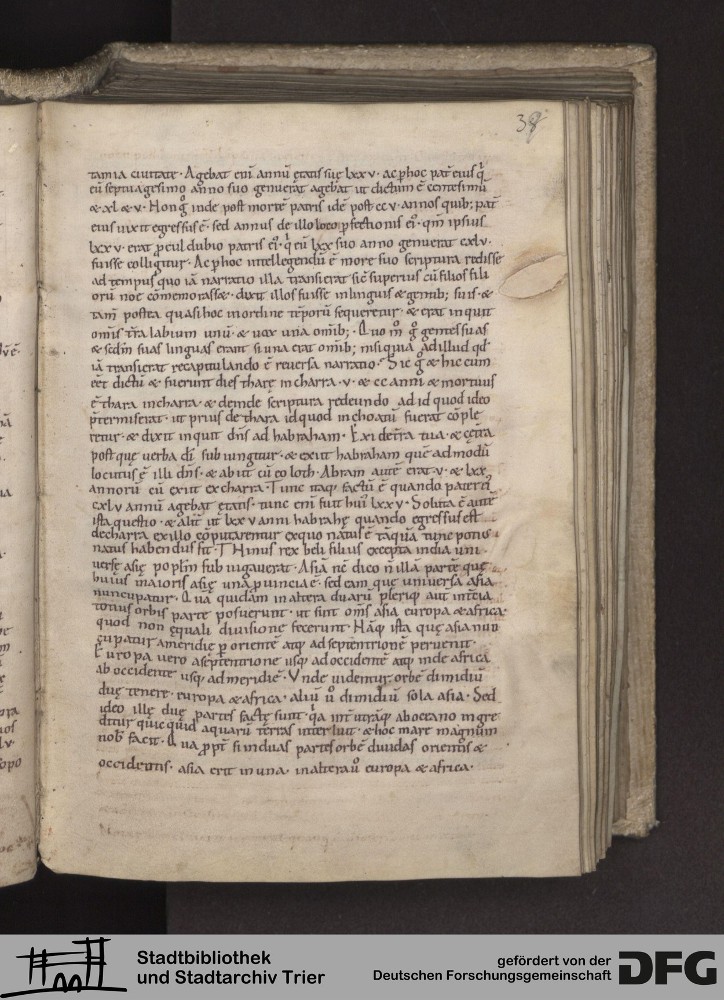 38
tamia ciuitate · Agebat eni᷅ annū ętatis suę lxxv · ac phoc pat̄ eius q̄
cū septuagesimo anno suo genuerat agebat ut dictum ē centesimū
& xl & v · Non ḡ inde post mortē patris idē post cc v · annos quib; pat̄
eius uixit egressus ē · sed annus de illo loco p̄fectionis ei᷒ · qm̄ ipsius
lxx v · erat p̄cul dubio patris ei᷒ · q̄ eū lxx suo anno genuerat cxlv ·
fuisse colligitur · Ac p̄hoc intellegendū ē more suo scriptura redisse
ad tempus quo iā narratio illa transierat sic̄ superius cū filios fili
orū noe cōmemorasset · dixit illos fuisse in linguis & gentib; suis · &
tam̄ postea quasi hoc in ordine tēporū sequeretur · & erat inquit
omīs t̄ra labium unū · & uox una omīb; · Quo m̊ ḡ gentes suas
& scdm̄ suas linguas erant si una erat omīb; nisi quia ad illud qd̄
iā transierat recapitulando ē reuersa narratio · Sic ḡ & hic cum
eēt dictū & fuerunt dies tharę in charra · v · & cc anni & mortuus
ē thara in charra · & deinde scriptura redeundo ad id quod ideo
p̄termiserat · ut prius de thara id quod inchoatū fuerat cōple
retur · & dixit inquit dn̄s ad habraham · Exi de t̄ra tua · & cęt̄ra
post quę uerba dī subiungitur · & exiit habraham quē admodū
locutus ē illi dn̄s · & abiit cū eo loth · Abram autē erat · v · & lxx
annorū cū exiit ex charra · Tunc itaq; factū ē quando pater ei᷒
cxlv annū agebat ętatis · tunc eni᷅ fuit hui᷒ lxx v · Soluta ē autē
ista questio · & alit̄ ut lxx v anni habrahę quando egressus est
de charra ex illo cōputarentur ex quo natus ē tāquā tunc potius
natus habendus sit · T Hinus rex beli filius excepta india uni
uersę asię pop̄lm̄ subiugauerat · Asiā nc̄ dico n̄ illā partē quę
huius maioris asię una p̄uincia ē · sed eam quę uniuersa asia
nuncupatur · Quā quidam in altera duarū pleriq; aut int̄cia
totius orbis parte posuerunt · ut sint om̄s asia europa & africa ·
quod non ęquali diuisione fecerunt · Nāq; ista quę asia nun
cupatur a meridie p̄ orientē atq; ad septentrionē peruenit ·
Europa uero a septentrione usq; ad occidentē atq; inde africa
ab occidente usq; ad meridiē · Vnde uidentur orbē dimidiū
duę tenere · europa & africa · aliū u᷒ dimidiū sola asia · Sed
ideo illę duę partes factę sunt · q̄a int̄ utrāq; ab oceano ingre
ditur quic quid aquarū terras interluit · & hoc mare magnum
nob̄ facit · Qua p̄pt̄ si in duas partes orbē diuidas orientis &
occidentis · asia erit in una · in altera u᷒ europa & africa ·
Stadtbibliothek
und Stadtarchiv Trier
gefördert von der
Deutschen Forschungsgemeinschaft
DFG